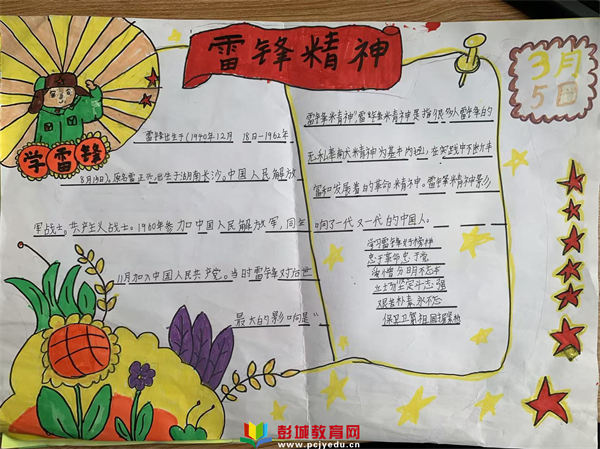 雷锋精神
3月
5日
学雷锋
雷锋出生于(1940年12月 18日-1962年
8月15日)。原名雷正兴,出生于湖南长沙。中国人民解放
军战士,共产主义战士。1960年参加中国人民解放军,同年
11月加入中国人民共产党。当时雷锋对后世
最大的影响是“
雷锋精神”,雷锋精神是指很多人雷锋的
无私奉献精神为基本内涵,在实践中不断丰
富和发展着的革命精神。雷锋精神影
响了一代又一代的中国人。
学习雷锋好榜样
忠于革命忠于党
爱憎分明不忘本
立场坚定斗志强
艰苦朴素永不忘
保卫
彭城教育网
www.pcjyedu.cn